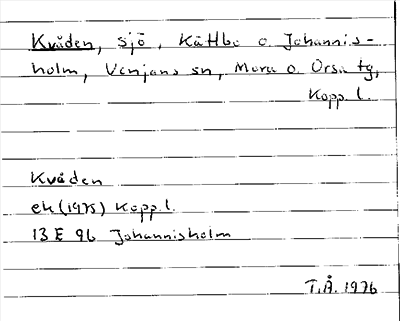 Kvåden, sjö, Kättbo o. Johannis-
holm, Venjans sn, Mora o. Orsa tg,
Kopp. l.
Kvåden
ek (1975) Kopp. l.
13 E 9b Johannisholm
T.Å. 1976